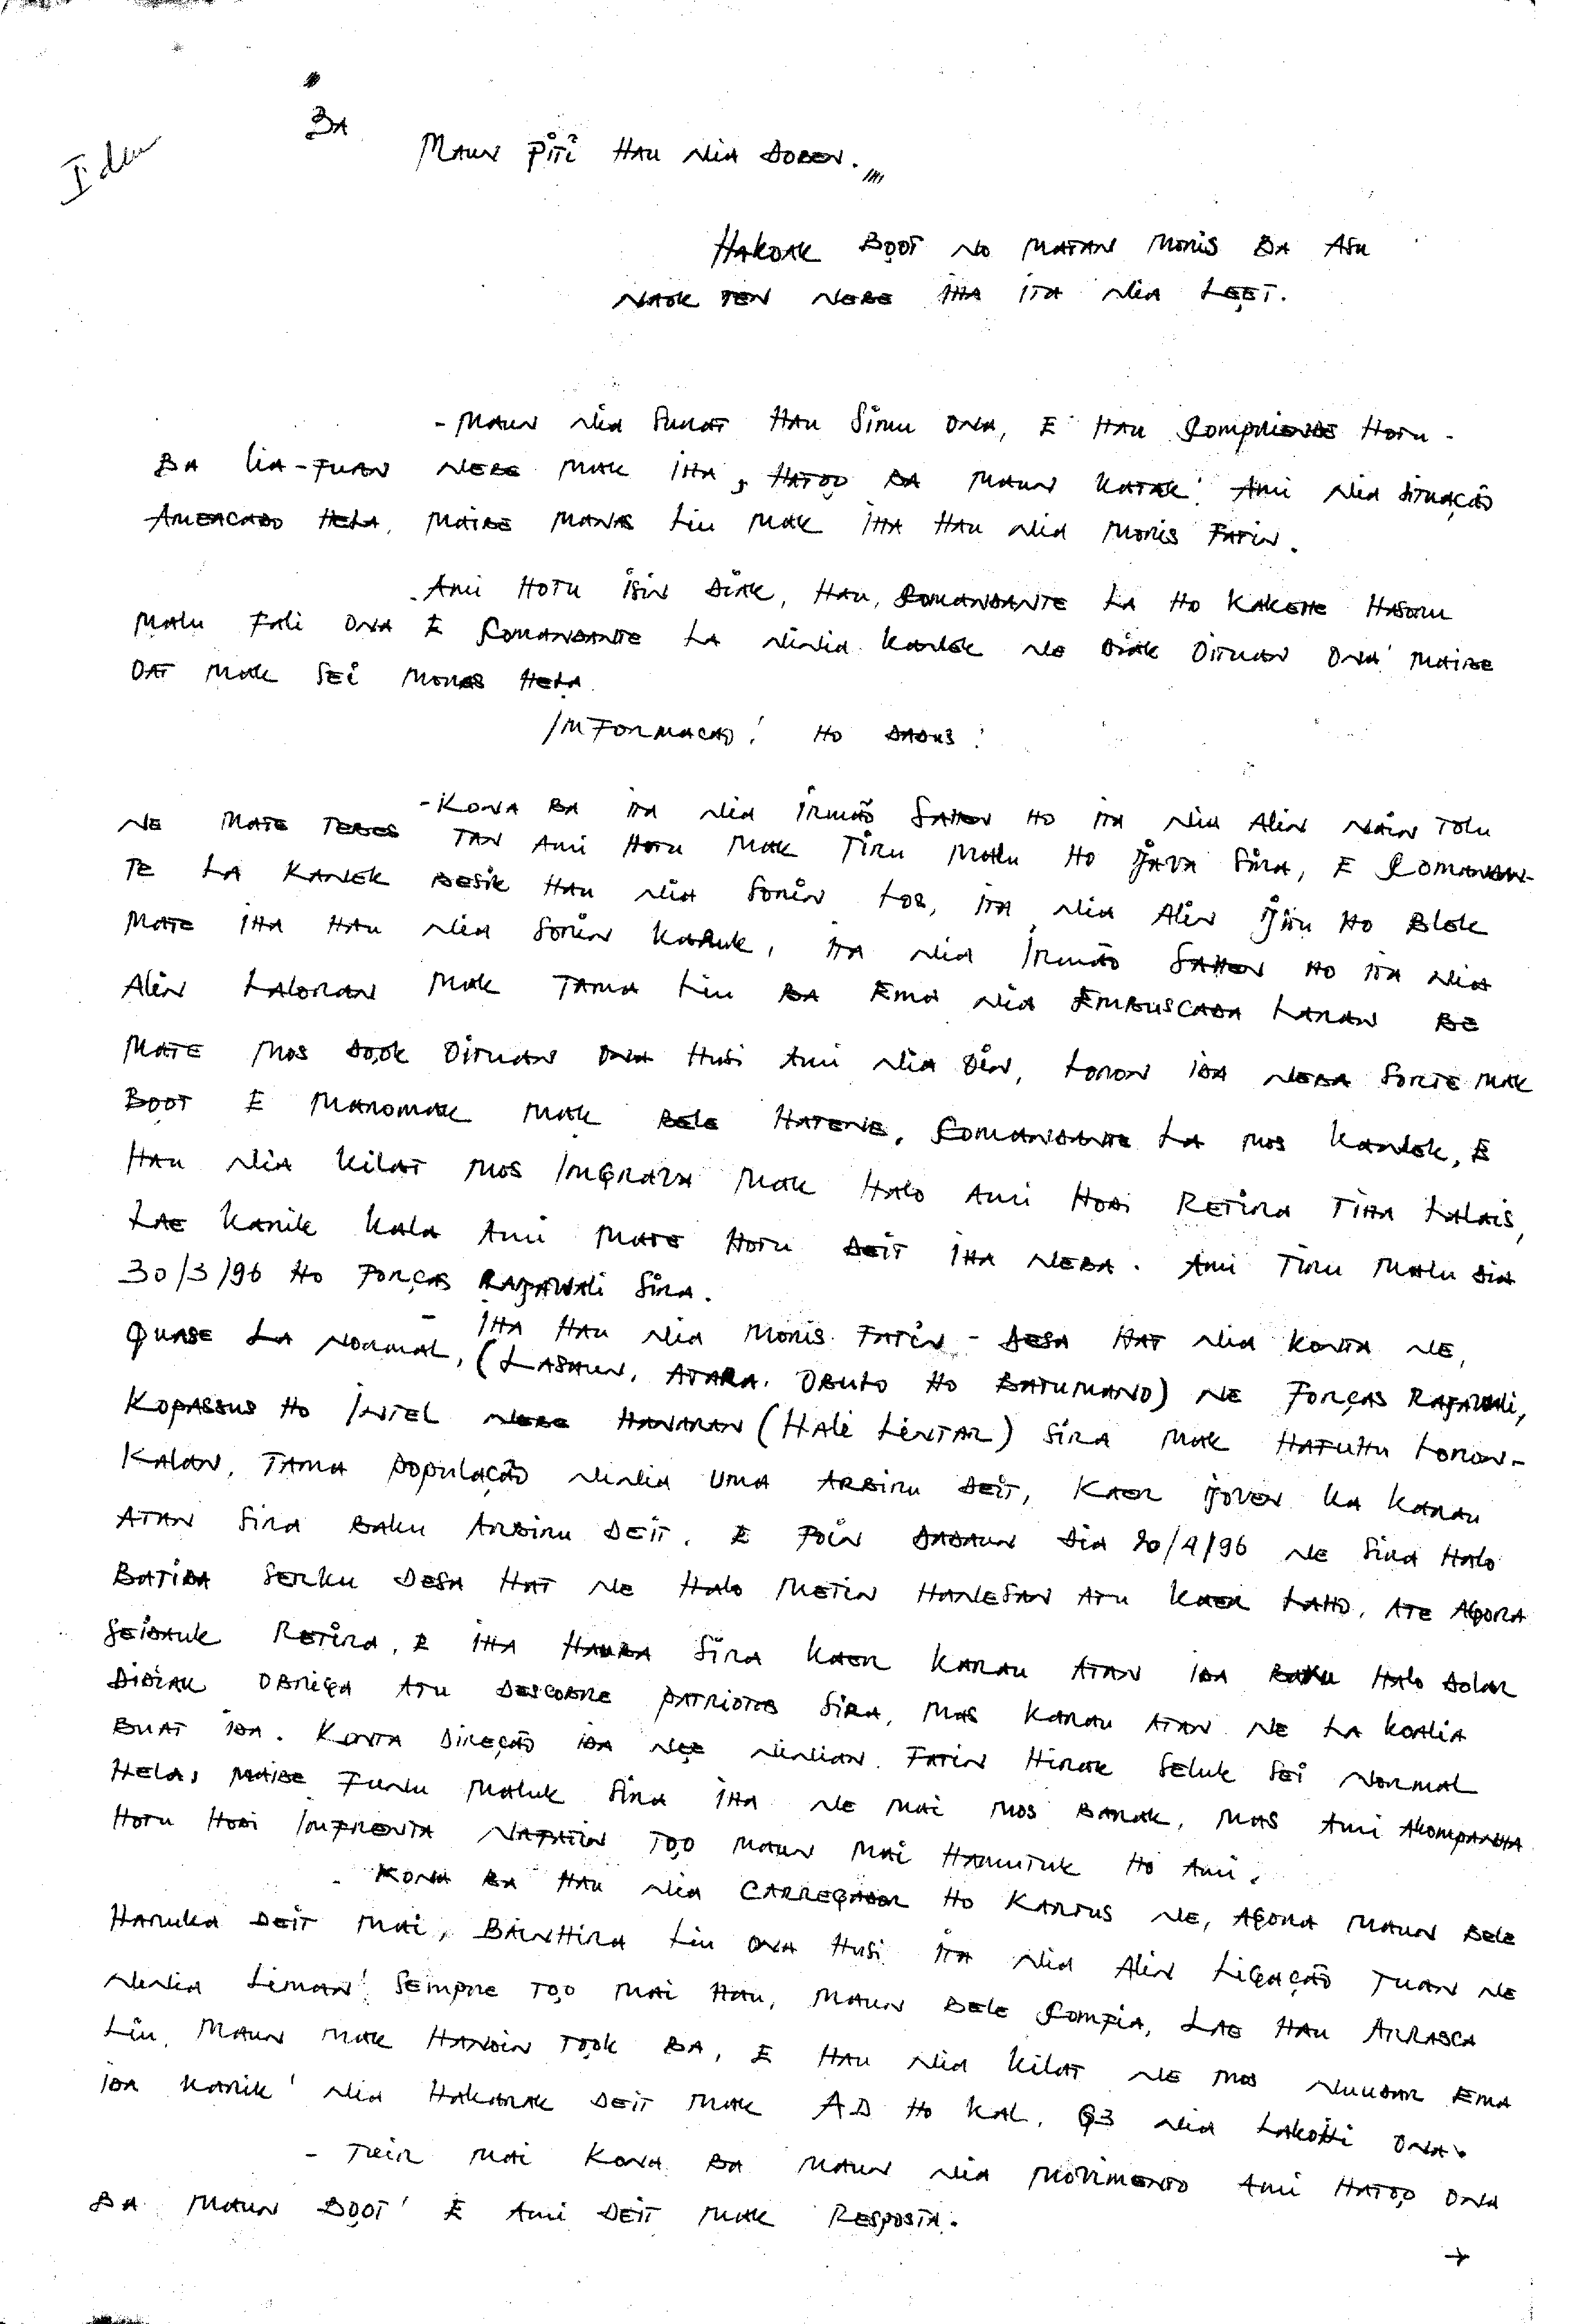 Idem
BA
MAUN PITI HAU NIA DOBEN.
HAKOAK BOOT NO MATAN MORIS BA ASU
NAOK TEN NEBE IHA ITA NIA LEET.
- MAUN NIA SURAT HAU SIMU ONA, E HAU COMPRIENDE HOTU -
BA LIA-FUAN NEBE MAK IHA, HATOO BA MAUN KATAK: AMI NIA SITUAÇÃO
AMEACADO HELA, MAIBE MANAS LIU MAK IHA HAU NIA MORIS FATIN.
- AMI HOTU ISIN DIAK, HAU, COMANDANTE LA HO KAKEHE HASORU
MALU FALI ONA E COMANDANTE LA NINIA KANEK NE DIAK OITUAN ONA' MAIBE
OAT MAK SEI MORAS HELA.
INFORMACAO! HO DADUS!
- KONA BA ITA NIA IRMÃO SAHEN HO ITA NIA ALIN NAIN TOLU
NE MATE TEBES TAN AMI HOTU MAK TIRU MALU HO JAVA SIRA, E COMANAN-
TE LA KANEK BESIK HAU NIA SORIN LOS, ITA NIA ALIN JITU HO BLEK
MATE IHA HAU NIA SORIN KARUK, ITA NIA IRMÃO SAHEN HO ITA NIA
ALIN LALORAN MAK TAMA LIU BA EMA NIA EMBUSCADA LARAN BE
MATE MOS DOOK OITUAN ONA HUSI AMI NIA OIN, LORON IDA NEBA SORTE MAK
BOOT E MAROMAK MAK BELE HATENE, COMANDANTE LA MOS KANEK, E
HAU NIA KILAT MOS INGRAVA MAK HALO AMI HODI RETIRA TIHA LALAIS,
LAE KARIK KALA AMI MATE HOTU DEIT IHA NEBA. AMI TIRU MALU DIA
30/3/96 HO FORÇAS RAJAWALI SIRA.
- IHA HAU NIA MORIS FATIN - DESA HAT NIA KONTA NE,
QUASE LA NORMAL, (LASAUN, ATARA, OBULO HO BATUMANO) NE FORÇAS RAJAWALI,
KOPASSUS HO INTEL NEBE HANARAN (HALI LINTAR) SIRA MAK HATUHU LORON-
KALAN, TAMA POPULAÇÃO NINIA UMA ARBIRU DEIT, KAER JOVEN KA KARAU
ATAN SIRA BAKU ARBIRU DEIT. E FOIN DADAUN DIA 20/4/96 NE SIRA HALO
BATIDA SERKU DESA HAT NE HALO METIN HANESAN ATU KAER LAHO, ATE AGORA
SEIDAUK RETIRA, E IHA HAUBA SIRA KAER KARAU ATAN IDA BAKU HALO DOLAR
DIDIAK OBRIGA ATU DESCOBRE PATRIOTAS SIRA, MAS KARAU ATAN NE LA KOALIA
BUAT IDA. KONTA DIREÇÃO IDA NEE NINIAN. FATIN HIRAK SELUK SEI NORMAL
HELA, MAIBE FUNU MALUK SIRA IHA NE MAI MOS BARAK, MAS AMI AKOMPANHA
HOTU HODI INFRENTA NAFATIN TOO MAUN MAI HAMUTUK HO AMI.
- KONA BA HAU NIA CARREGADOR HO KARTUS NE, AGORA MAUN BELE
HARUKA DEIT MAI, BAINHIRA LIU ONA HUSI ITA NIA ALIN LIGAÇÃO TUAN NE
NINIA LIMAN' SEMPRE TOO MAI HAU, MAUN BELE COMFIA, LAE HAU ARRASCA
LIU, MAUN MAK HANOIN TOOK BA, E HAU NIA KILAT NE MOS NUUDAR EMA
IDA KARIK' NIA HAKARAK DEIT MAK AD HO KAL, G3 NIA LAKOHI ONA.
- TUIR MAI KONA BA MAUN NIA MOVIMENTO AMI HATOO ONA
BA MAUN BOOT' E AMI DEIT MAK RESPOSTA.
→